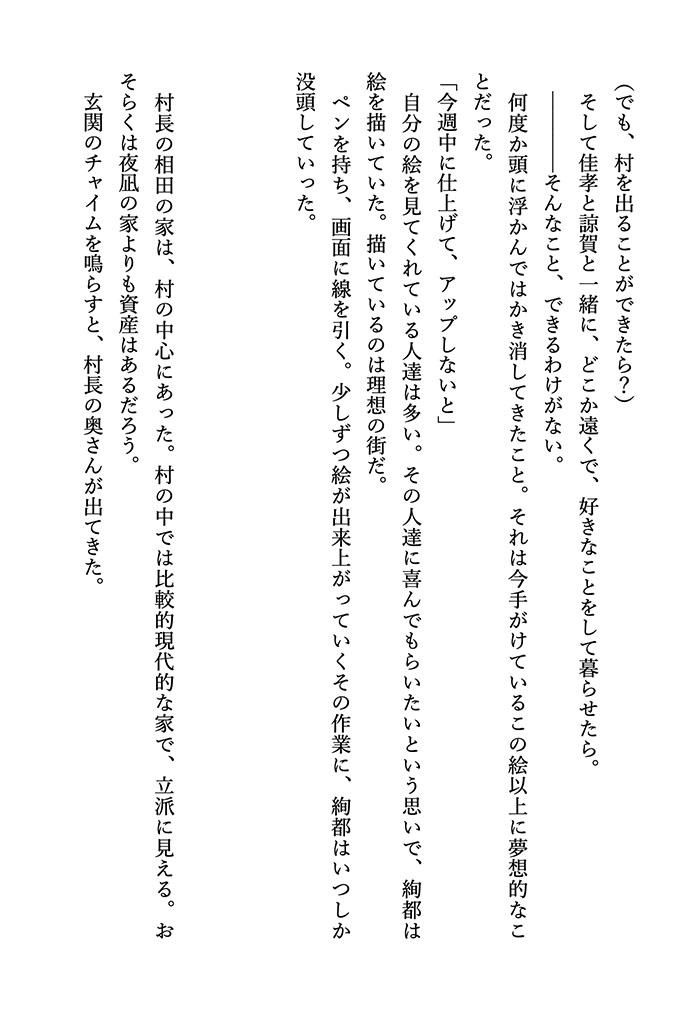 (でも、村を出ることができたら？)
　そして佳孝と諒賀と一緒に、どこか遠くで、好きなことをして暮らせたら。
　――――そんなこと、できるわけがない。
　何度か頭に浮かんではかき消してきたこと。それは今手がけているこの絵以上に夢想的なこ
とだった。
「今週中に仕上げて、アップしないと」
　自分の絵を見てくれている人達は多い。その人達に喜んでもらいたいという思いで、絢都は
絵を描いていた。描いているのは理想の街だ。
　ペンを持ち、画面に線を引く。少しずつ絵が出来上がっていくその作業に、絢都はいつしか
没頭していった。
　村長の相田の家は、村の中心にあった。村の中では比較的現代的な家で、立派に見える。お
そらくは夜凪の家よりも資産はあるだろう。
　玄関のチャイムを鳴らすと、村長の奥さんが出てきた。